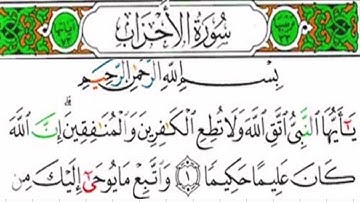 سُورَةُ الأَحْزَابِ
بِسْمِ اللَّهِ الرَّحْمَٰنِ الرَّحِيمِ
يَٰٓأَيُّهَا ٱلنَّبِيُّ ٱتَّقِ ٱللَّهَ وَلَا تُطِعِ ٱلْكَٰفِرِينَ وَٱلْمُنَٰفِقِينَۗ إِنَّ ٱللَّهَ
كَانَ عَلِيمًا حَكِيمًا ١ وَٱتَّبِعْ مَا يُوحَىٰٓ إِلَيْكَ مِن